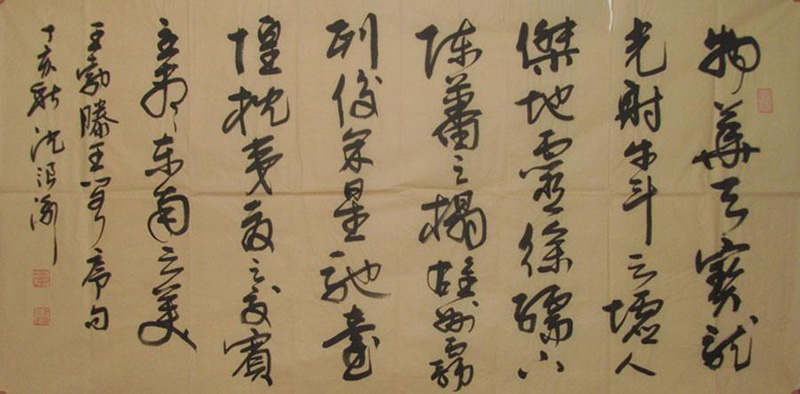 物華天寶龍
光射牛斗之墟人
傑地靈徐孺下
陳蕃之榻雄州霧
列俊采星馳臺
隍枕夷夏之交賓
主盡東南之美
王勃滕王閣序句
丁亥秋沈